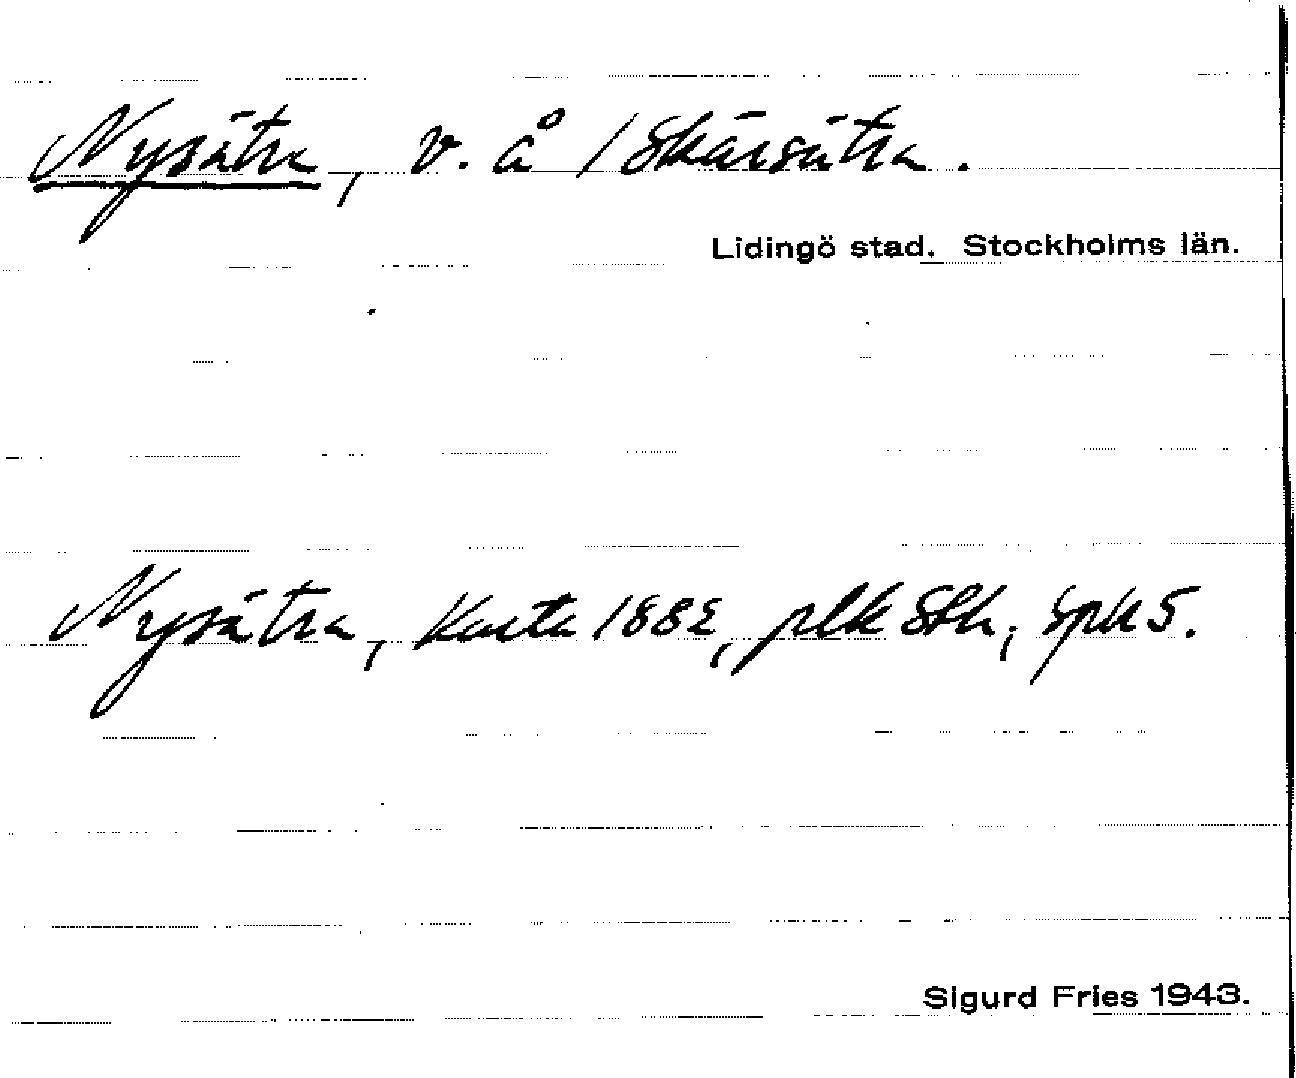 Nysätra, v. å / Skärsätra.
Lidingö stad. Stockholms län.
Nysätra, Karta 1882, plk Sth, Spk 5.
Sigurd Fries 1943.